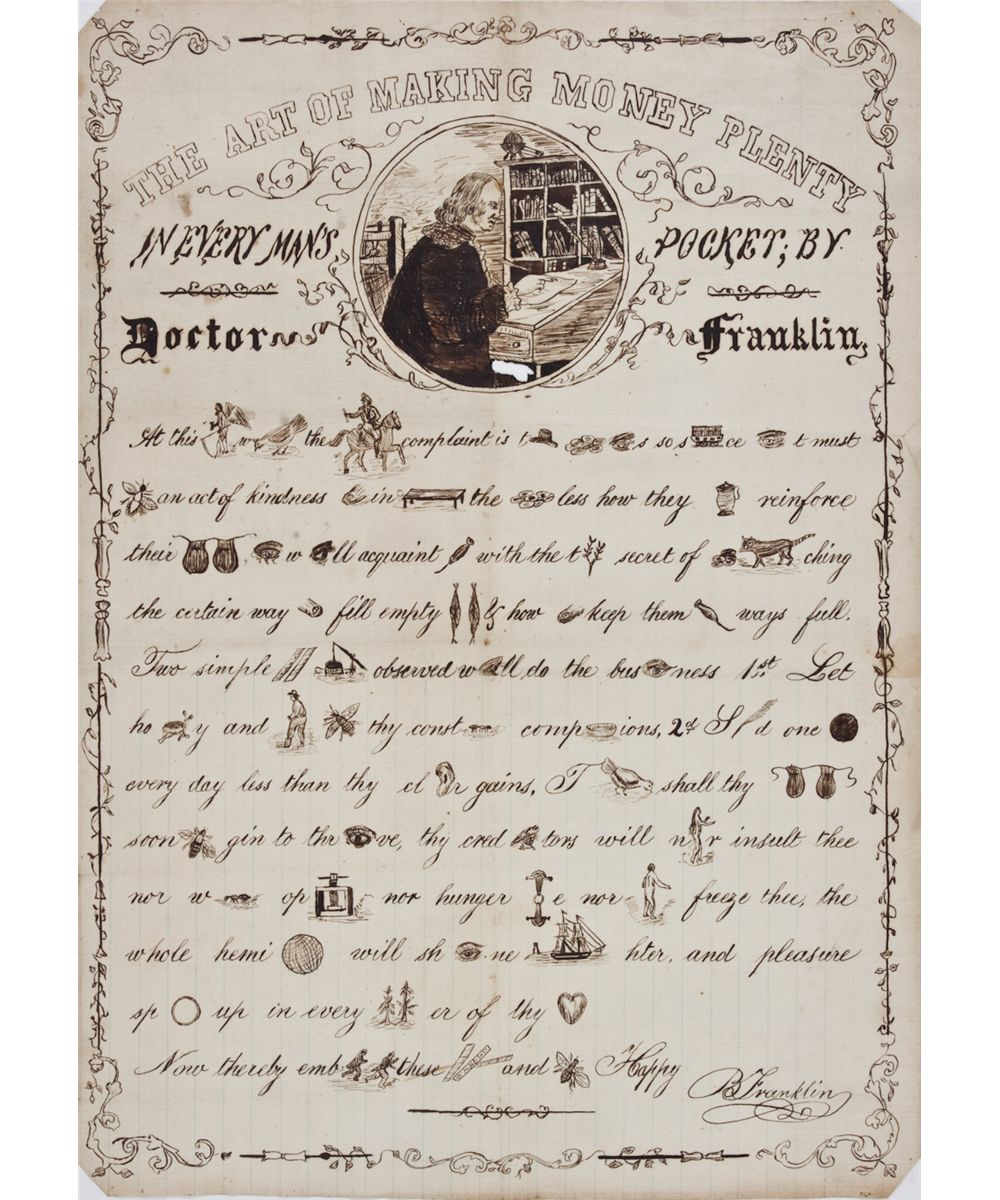 THE ART OF MAKING MONEY PLENTY
IN EVERY MAN'S POCKET; BY
Doctor Franklin,
At this w the complaint is t s so s ce t must
an act of kindness in the less how they reinforce
their w ll acquaint with the t secret of ching
the certain way fill empty & how keep them ways full.
Two simple observed w ll do the bus ness 1st Let
ho y and thy const comp ions, 2d S d one
every day less than thy cl r gains, T shall thy
soon gin to thr ve, thy cred tors will n r insult thee
nor w op nor hunger e nor freeze thee, the
whole hemi will sh ne hter, and pleasure
sp up in every er of thy
Now thereby emb these and Happy
B Franklin